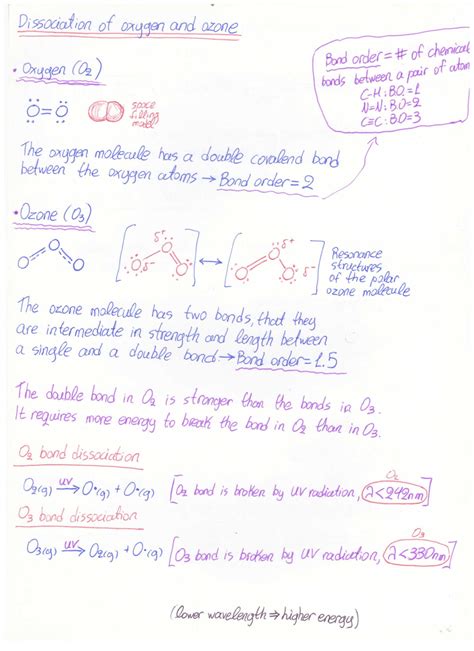 Dissociation of oxygen and ozone
Bond order = # of chemical
bonds between a pair of atom
C-H : B.O. = 1
N=N : B.O = 2
C≡C : B.O = 3
• Oxygen (O₂)
Ö=Ö
space
filling
model
The oxygen molecule has a double covalend bond
between the oxygen atoms → Bond order = 2
• Ozone (O₃)
O O O
δ+
O O O
δ-
↔
δ+
O O O
δ-
Resonance
structures
of the polar
ozone molecule
The ozone molecule has two bonds, that they
are intermediate in strength and length between
a single and a double bond → Bond order = 1.5
The double bond in O₂ is stronger than the bonds in O₃.
It requires more energy to break the bond in O₂ than in O₃.
O₂ bond dissociation
O₂
O₂(g) UV→ O•(g) + O•(g) [O₂ bond is broken by UV radiation, λ<242nm]
O₃ bond dissociation
O₃
O₃(g) UV→ O₂(g) + O•(g) [O₃ bond is broken by UV radiation, λ<330nm]
(lower wavelength ⇒ higher energy)